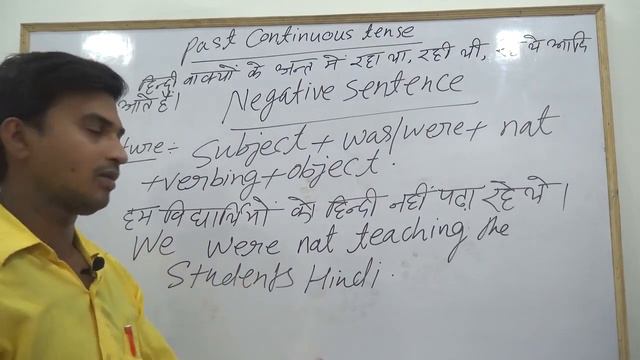 Past Continuous tense
हिन्दी वाक्यों के अन्त में रहा था, रही थी, रहे थे आदि
आते हैं।
Negative Sentence
ture :- Subject + was/were + nat
+ verbing + object.
हम विद्यार्थियों को हिन्दी नहीं पढ़ा रहे थे।
We were nat teaching the
Students Hindi.